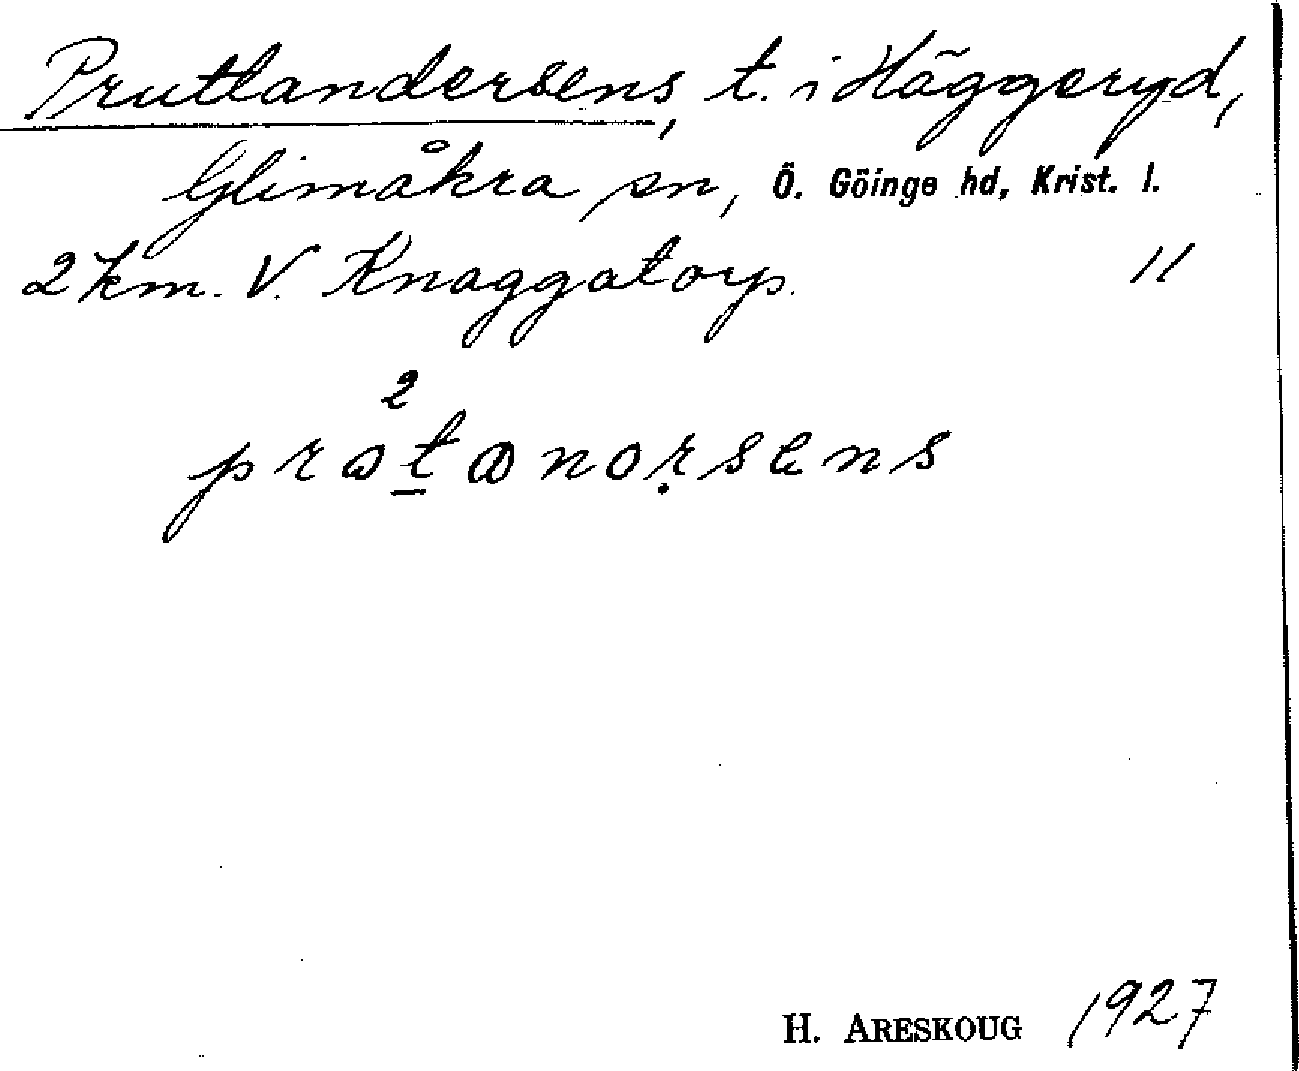 Prutlandersens, t. i Häggeryd,
Glimåkra sn, Ö. Göinge hd, Krist. l.
2 km. V. Knaggatorp. 11
2
H. ARESKOUG 1927